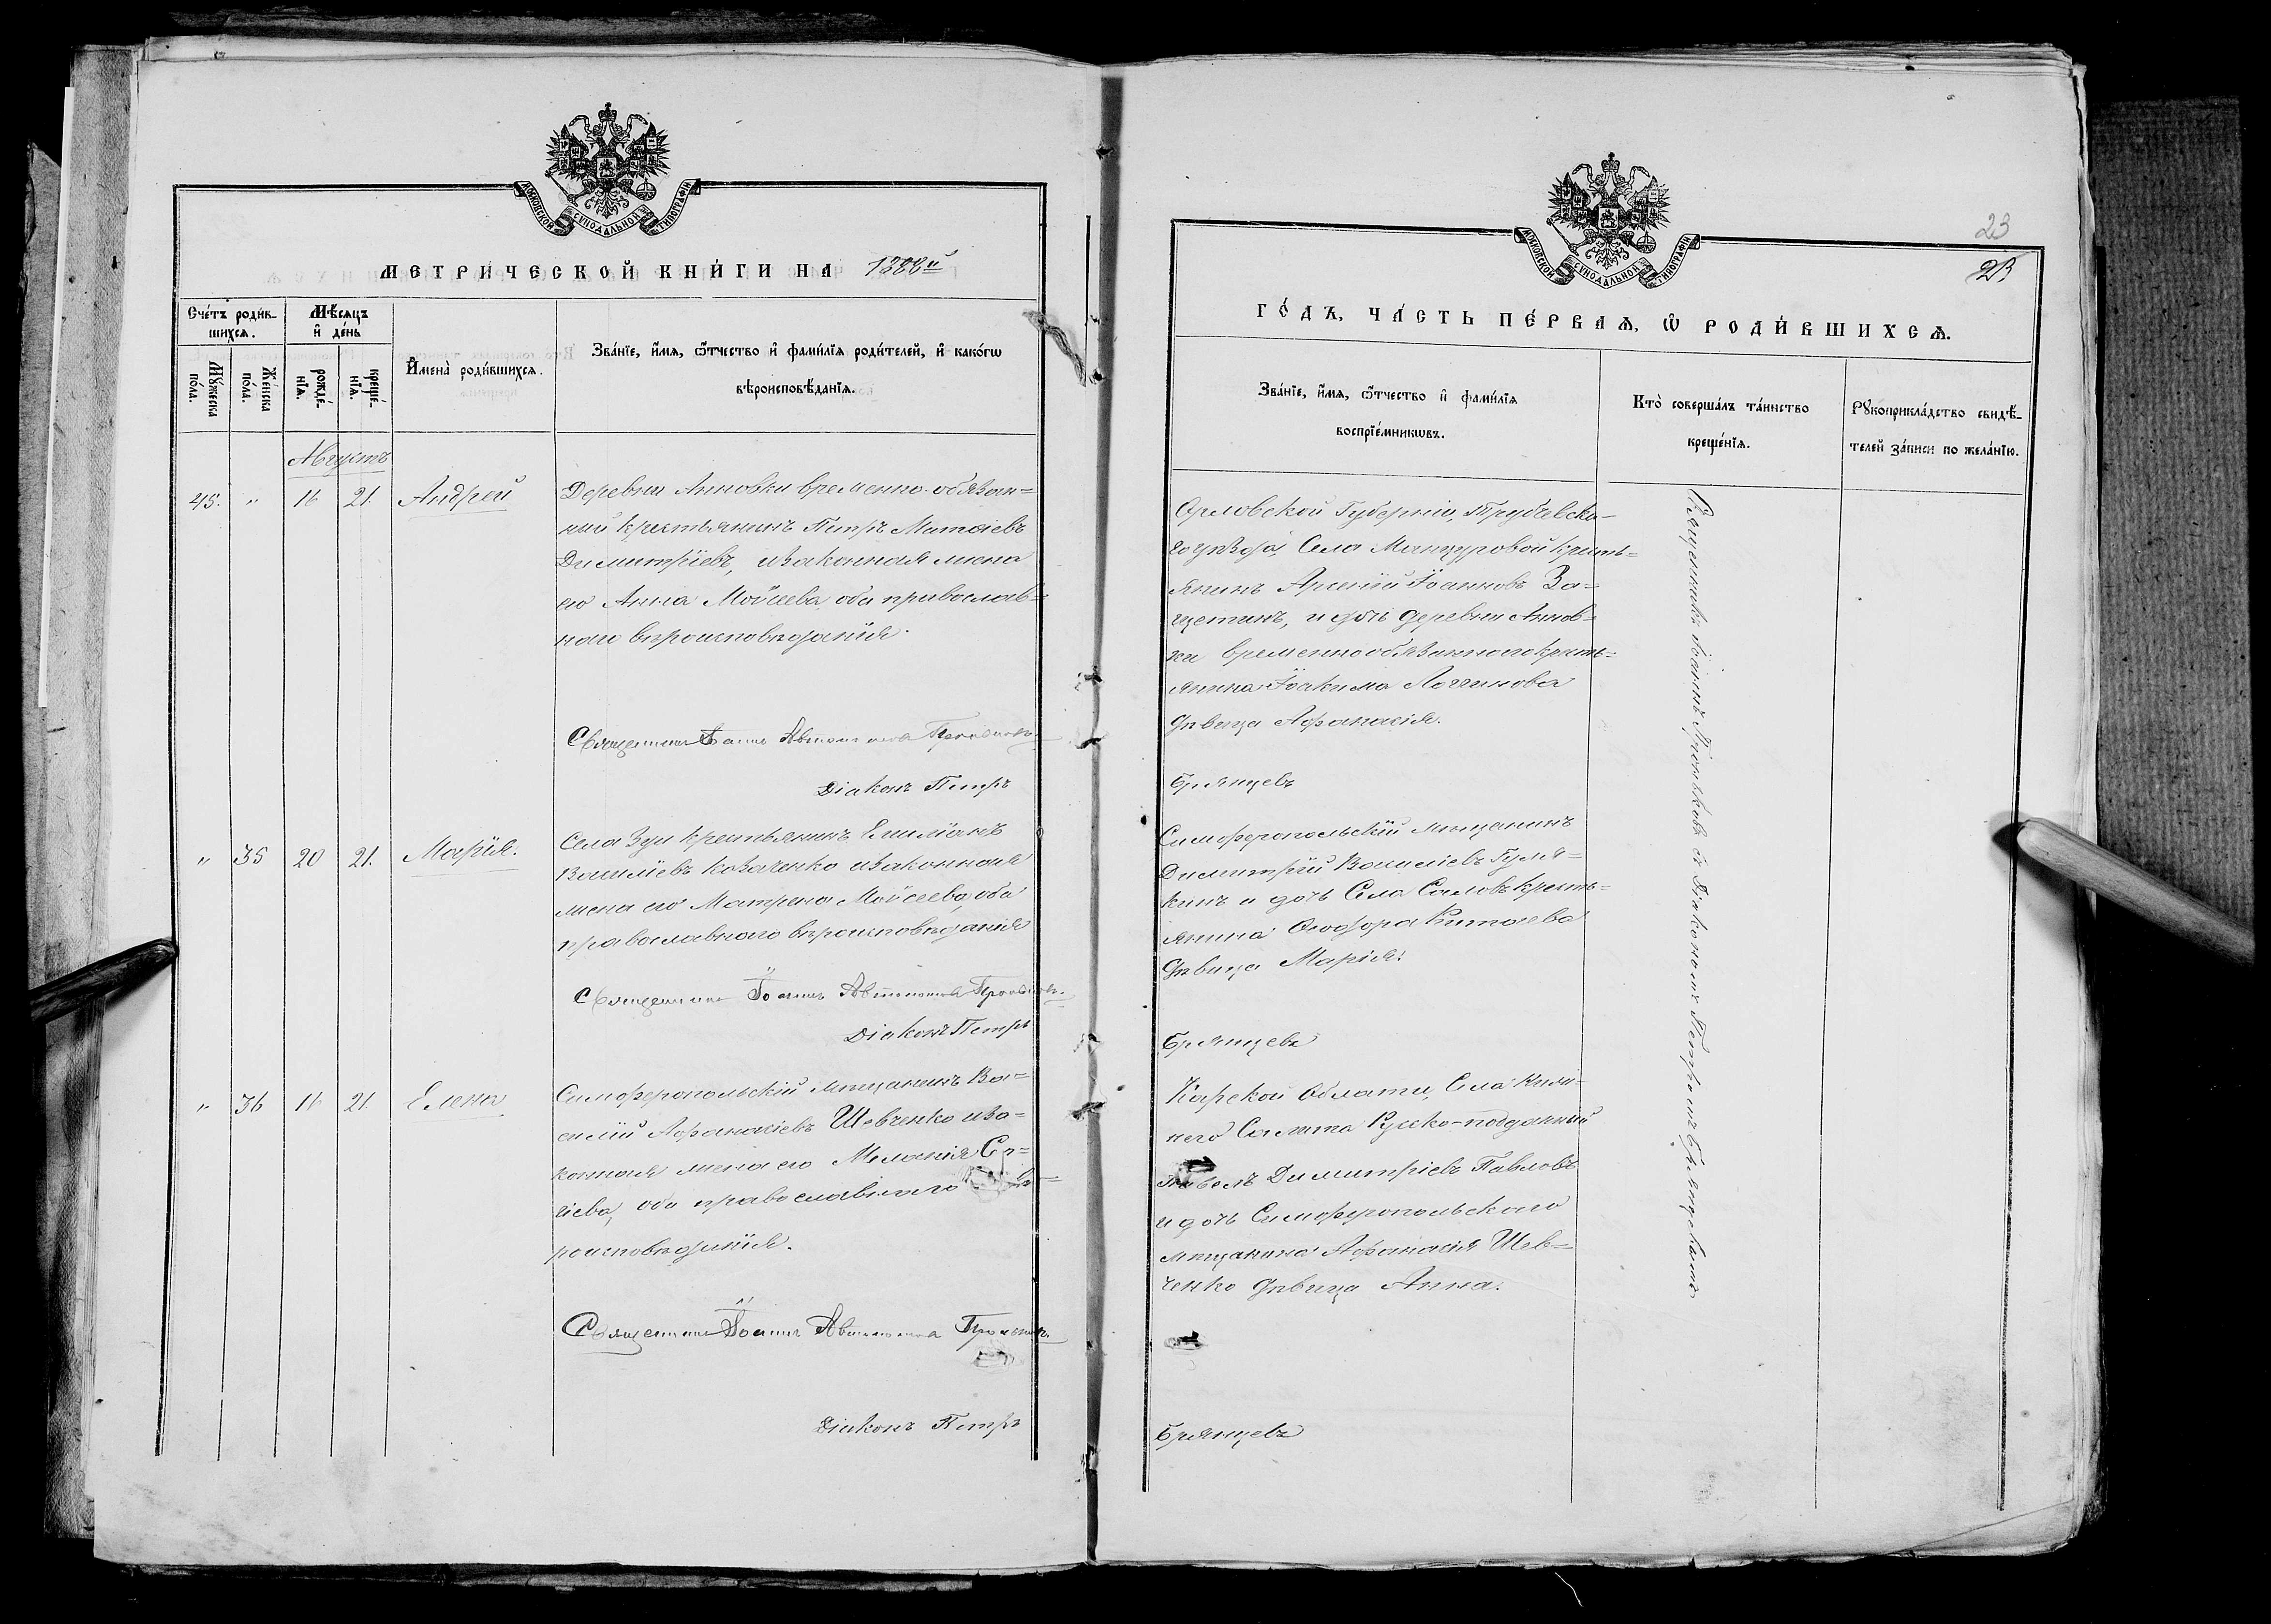 МОСКОВСКОЙ СѴНОДАЛЬНОЙ ТИПОГРАФІИ
МЕТРИ́ЧЕСКОЙ КНИ́ГИ НА 1888й
Сче́тъ роди́в-
шихсѧ.
Мѣ́сѧцъ
и҆ де́нь
Мꙋ́жеска
по́ла.
Же́нска
по́ла.
рожде́-
нїѧ.
креще́-
нїѧ.
И҆мена̀ роди́вшихсѧ.
Зва́нїе, и҆́мѧ, ѻ҆́тчество и҆ фами́лїѧ роди́телей, и҆ како́гѡ
вѣроисповѣ́данїѧ.
Августъ
45. " 16 21. Андрей
Деревни Анновки временно-обязан=
ный крестьянинъ Петръ Матѳіевъ
Димитріевъ, и законная жена
его Анна Мойсеева, оба православ=
наго вѣроисповѣданія.
Священникъ Іоаннъ
Діаконъ Петръ
" 35 20 21. Марія.
Села Зуи крестьянинъ Емиліанъ
Василіевъ Козаченко и законная
жена его Матрена Мойсеева, оба
православнаго вѣроисповѣданія
Священникъ Іоаннъ
Діаконъ Петръ
" 36 16 21. Елена
Симферопольскій мѣщанинъ Ва=
силій Афанасіевъ Шевченко и за=
конная жена его Меланія Сер=
гіева, оба православнаго вѣ=
роисповѣданія.
Священникъ Іоаннъ
Діаконъ Петръ
23
МОСКОВСКОЙ СѴНОДАЛЬНОЙ ТИПОГРАФІИ
23
ГО́ДЪ, ЧА́СТЬ ПЕ́РВАѦ, Ѡ҆ РОДИ́ВШИХСѦ.
Зва́нїе, и҆́мѧ, ѻ҆́тчество и҆ фами́лїѧ
воспрїе́мникѡвъ.
Кто̀ соверша́лъ та́инство
креще́нїѧ.
Рꙋкоприкла́дство свидѣ́-
телей за́писи по жела́нїю.
Орловской Губерніи, Трубчевска-
го уѣзда Села Манцуровой кресть=
янинъ Арсеній Іоанновъ За=
щетинъ, и дочь деревни Аннов=
ки временнообязаннаго кресть=
янина Іоакима Логгинова
дѣвица Афанасія.
Брянцевъ
Симферопольскій мѣщанинъ
Димитрій Василіевъ Гуля=
кинъ и дочь Села Саловъ кресть=
янина Ѳеодора Китаева
дѣвица Марія.
Брянцевъ
Карской области, Села
Салита Руско-подданный
Павелъ Димитріевъ Павловъ
и дочь Симферопольскаго
мѣщанина Афанасія Шев=
ченко дѣвица Анна.
Брянцевъ
Священникъ Іоаннъ съ Діакономъ Петромъ Брянцевымъ